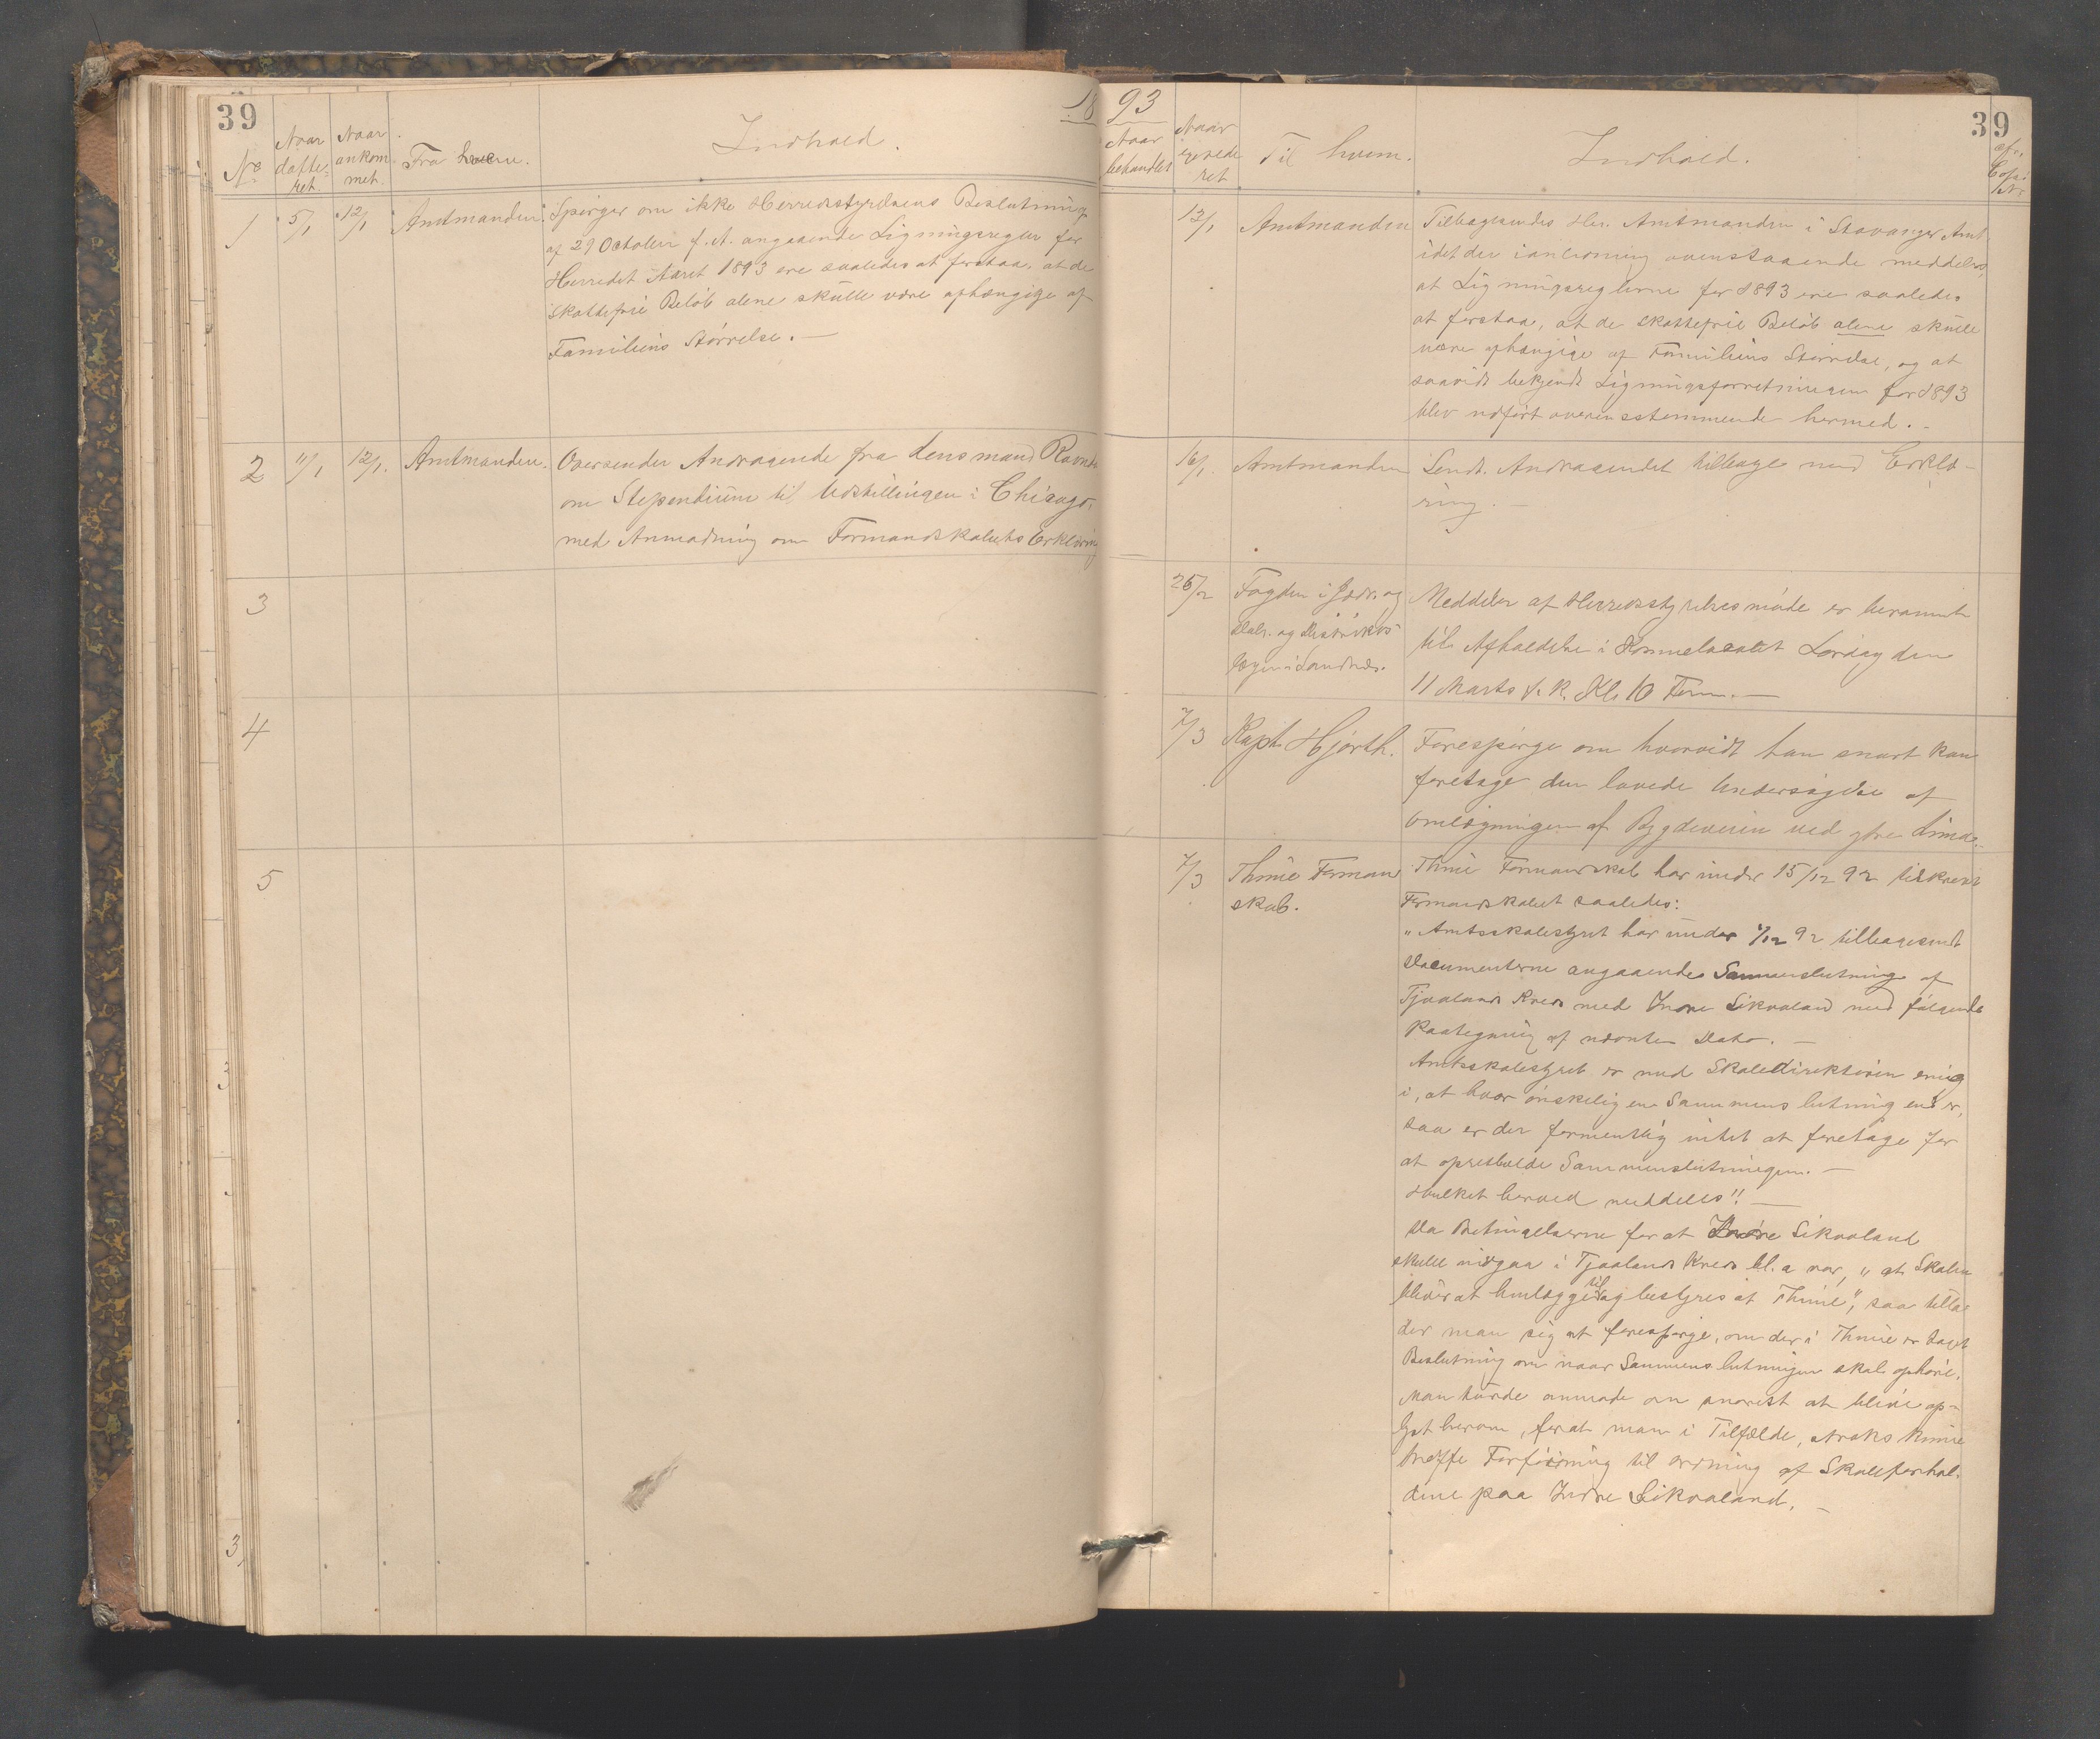 39
1893
39
No
Naar datte-ret.
Naar ankom met.
Fra hvem.
Indhold.
Naar behandlet
Naar expede ret
Til hvem.
Indhold.
1
5/1
12/1
Amtmanden.
Spørger om ikke Herredsstyrelsens Beslutning
af 29 October f. A. angaaende Ligningsregler for
Herredet Aaret 1893 ere saaledes at forstaa, at de
skattefrie Beløb alene skulle være afhængige af
Familiens Størrelse. —
13/1
Amtmanden
Tilbagesendes Hr. Amtmanden i Stavanger Amt
idet der i anledning ovenstaaende meddeles,
at Ligningsreglerne for 1893 ere saaledes
at forstaa, at de skattefrie Beløb alene skulle
være afhængige af Familiens Størrelse, og at
saavidt bekjendt Ligningsforretningen for 1893
blev udført overensstemmende hermed. -
2
11/1
12/1.
Amtmanden.
Oversender Andragende fra Lensmand
om Stependium til Udstillingen i Chicago.
med Anmodning om Formandskabets Erklæring
16/1.
Amtmanden
Sendt Andragendet tilbage med Erklæ-
ring. —
3
25/2
Fogden i Jæd. og
Dal. og Distrikts
lægen i Sandnæs.
Meddeler at Herredsstyrelsesmøde er berammet
til Afholdelse i Kommelocalet Lørdag den
11 Marts d. k. Kl. 10 Form. —
4
7/3
Kapt. Hjorth.
Forespørge om hvorvidt han snart kan
foretage den lovede Undersøgelse af
Omlægningen af Bygdeveien ved ytre Lima.
5
7/3
Thime Forman
skab.
Thime Formandskab har under 15/12 92 tilskrevet
Formandskabet saaledes:
"Amtsskolestyret har under 92 tilbagesendt
Documenterne angaaende Sammenslutning af
Tjaalands Kreds med Indre Sikvaland med følgende
Paategning af Dato. —
Amtsskolestyret er med Skoledirektøren enig
i, at hvor ønskelig en Sammenslutning end er,
saa er der formentlig intet at foretage for
at opretholde Sammenslutningen. —
Hvilket herved meddeles". —
Da Betingelserne for at Indre Sikvaland
skulle indgaa i Tjaalands Kreds bl. a var, "at Skolen
bliver at henlægge til og bestyres af Thime", saa tilla-
der man sig at forespørge, om der i Thime er taget
Beslutning om naar Sammenslutningen skal ophøre.
Man turde anmode om snarest at blive op-
lyst herom, forat man i Tilfælde, straks kunne
træffe Forføining til ordning af Skoleforhol.
dene paa Indre Sikvaland. —
3
3